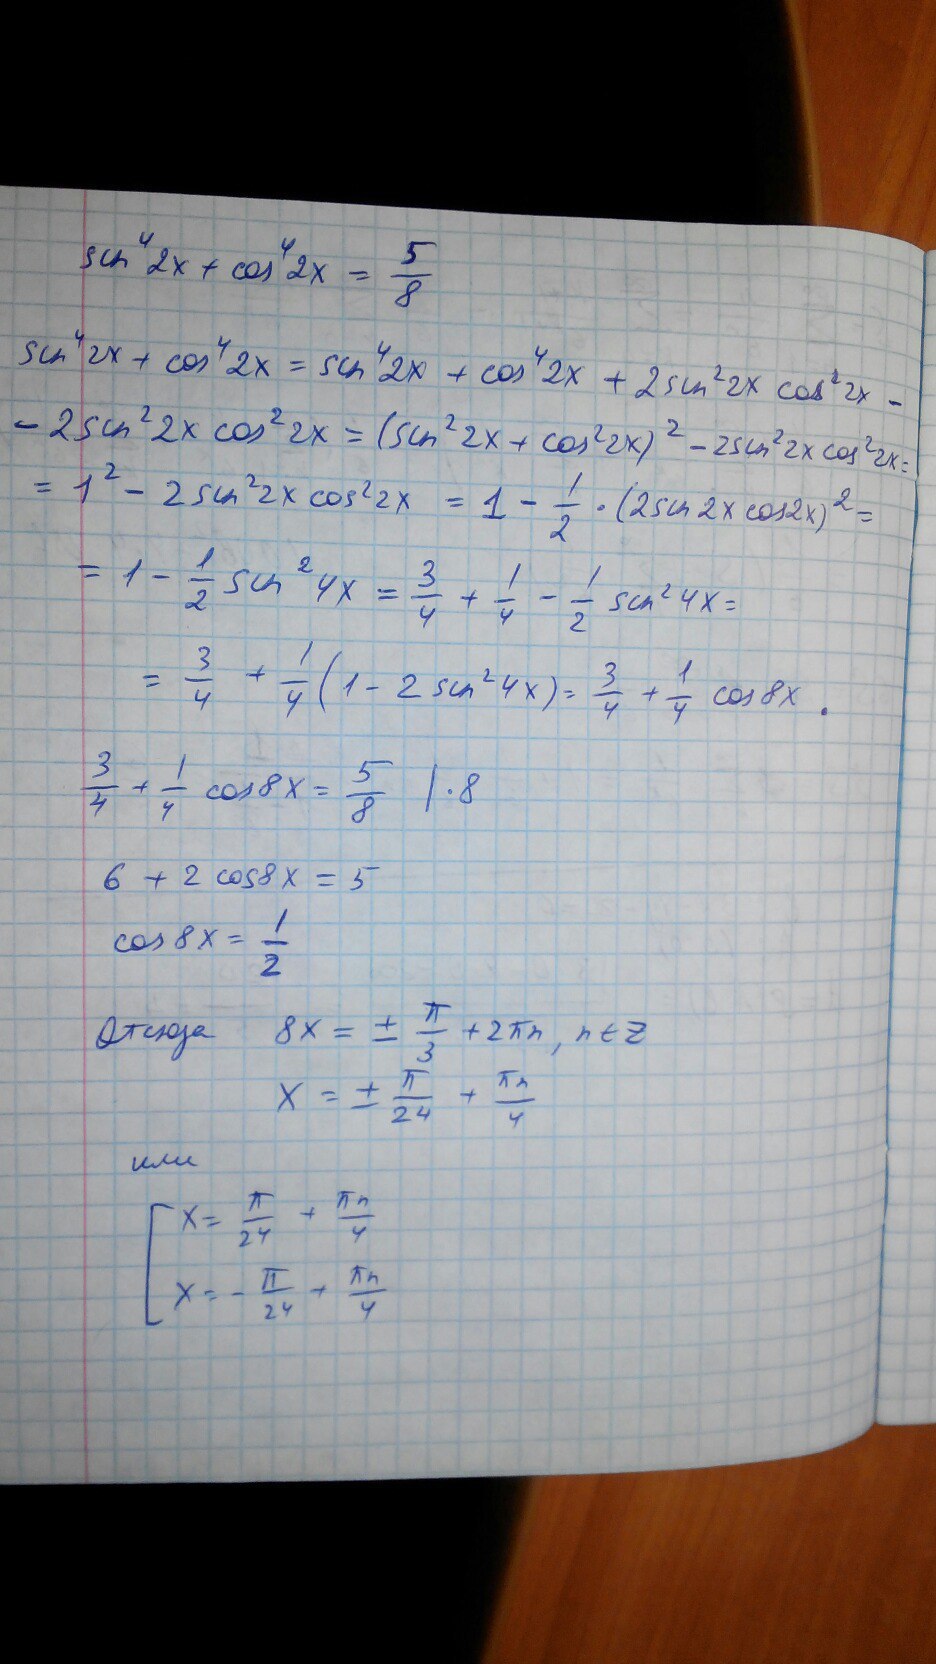 sin⁴2x + cos⁴2x = 5/8
sin⁴2x + cos⁴2x = sin⁴2x + cos⁴2x + 2sin²2x cos²2x -
- 2sin²2x cos²2x = (sin²2x + cos²2x)² - 2sin²2x cos²2x =
= 1² - 2sin²2x cos²2x = 1 - 1/2 · (2sin2x cos2x)² =
= 1 - 1/2 sin²4x = 3/4 + 1/4 - 1/2 sin²4x =
= 3/4 + 1/4 (1 - 2sin²4x) = 3/4 + 1/4 cos8x.
3/4 + 1/4 cos8x = 5/8 | · 8
6 + 2cos8x = 5
cos8x = 1/2
Отсюда 8x = ± π/3 + 2πn, n ∈ Z
x = ± π/24 + πn/4
или
[ x = π/24 + πn/4
x = - π/24 + πn/4